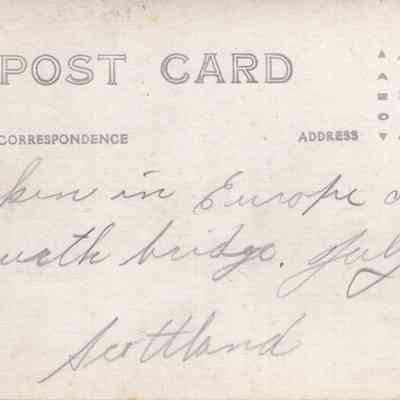 POST CARD
CORRESPONDENCE ADDRESS
ken in Europe
urth bridge. July
Scottland